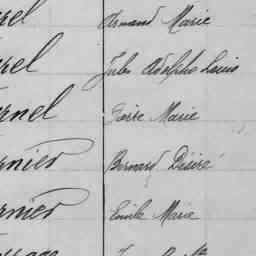 rel Armand Marie
rel Jules Adolphe Louis
rnel Pierre Marie
rnier Bernard Désiré
rnier Emile Marie